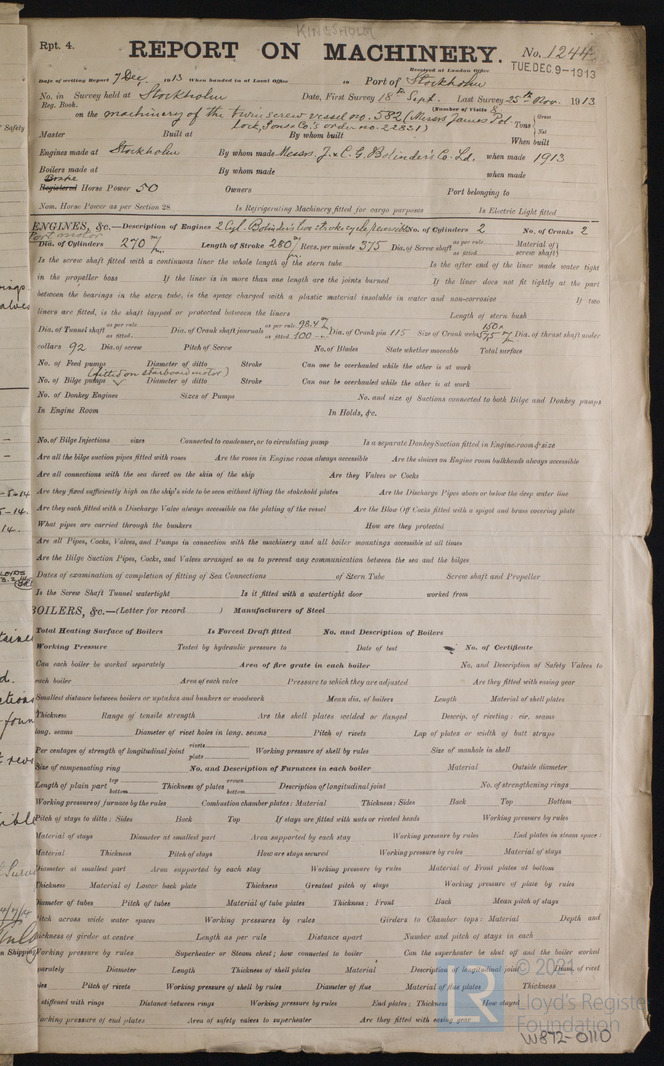 KINGSHOLM
Rpt. 4.
REPORT ON MACHINERY.
No. 1244
Received at London Office
TUE. DEC. 9-1913
Date of writing Report 7 Dec. 1913 When handed in at Local Office 19 Port of Stockholm
No. in Survey held at Stockholm Date, First Survey 18th Sept. Last Survey 25th Nov. 1913
Reg. Book. (Number of Visits 8
on the machinery of the twin screw vessel no. 582 (Messrs James Pol-
lock, Sons & Co.'s order no. 22831) Tons Gross Net
Master Built at By whom built When built
Engines made at Stockholm By whom made Messrs. J. & C. G. Bolinder's Co. Ld. when made 1913
Boilers made at By whom made when made
Brake
Registered Horse Power 50 Owners Port belonging to
Nom. Horse Power as per Section 28 Is Refrigerating Machinery fitted for cargo purposes Is Electric Light fitted
ENGINES, &c.—Description of Engines 2 Cyl. Bolinder's two stroke cycle reversible No. of Cylinders 2 No. of Cranks 2
Port motor
Dia. of Cylinders 270 m/m Length of Stroke 280 m/m Revs. per minute 375 Dia. of Screw shaft as per rule as fitted Material of screw shaft
Is the screw shaft fitted with a continuous liner the whole length of the stern tube Is the after end of the liner made water tight
in the propeller boss If the liner is in more than one length are the joints burned If the liner does not fit tightly at the part
between the bearings in the stern tube, is the space charged with a plastic material insoluble in water and non-corrosive If two
liners are fitted, is the shaft lapped or protected between the liners Length of stern bush
Dia. of Tunnel shaft as per rule as fitted Dia. of Crank shaft journals as per rule 98.4 as fitted 100 Dia. of Crank pin 115 Size of Crank webs 150 x 55 m/m Dia. of thrust shaft under
collars 92 Dia. of screw Pitch of Screw No. of Blades State whether moveable Total surface
No. of Feed pumps Diameter of ditto Stroke Can one be overhauled while the other is at work
(fitted on starboard motor)
No. of Bilge pumps Diameter of ditto Stroke Can one be overhauled while the other is at work
No. of Donkey Engines Sizes of Pumps No. and size of Suctions connected to both Bilge and Donkey pumps
In Engine Room In Holds, &c.
No. of Bilge Injections sizes Connected to condenser, or to circulating pump Is a separate Donkey Suction fitted in Engine room & size
Are all the bilge suction pipes fitted with roses Are the roses in Engine room always accessible Are the sluices on Engine room bulkheads always accessible
Are all connections with the sea direct on the skin of the ship Are they Valves or Cocks
Are they fixed sufficiently high on the ship's side to be seen without lifting the stokehold plates Are the Discharge Pipes above or below the deep water line
Are they each fitted with a Discharge Valve always accessible on the plating of the vessel Are the Blow Off Cocks fitted with a spigot and brass covering plate
What pipes are carried through the bunkers How are they protected
Are all Pipes, Cocks, Valves, and Pumps in connection with the machinery and all boiler mountings accessible at all times
Are the Bilge Suction Pipes, Cocks, and Valves arranged so as to prevent any communication between the sea and the bilges
Dates of examination of completion of fitting of Sea Connections of Stern Tube Screw shaft and Propeller
Is the Screw Shaft Tunnel watertight Is it fitted with a watertight door worked from
BOILERS, &c.—(Letter for record ) Manufacturers of Steel
Total Heating Surface of Boilers Is Forced Draft fitted No. and Description of Boilers
Working Pressure Tested by hydraulic pressure to Date of test No. of Certificate
Can each boiler be worked separately Area of fire grate in each boiler No. and Description of Safety Valves to
each boiler Area of each valve Pressure to which they are adjusted Are they fitted with easing gear
Smallest distance between boilers or uptakes and bunkers or woodwork Mean dia. of boilers Length Material of shell plates
Thickness Range of tensile strength Are the shell plates welded or flanged Descrip. of riveting: cir. seams
long. seams Diameter of rivet holes in long. seams Pitch of rivets Lap of plates or width of butt straps
Per centages of strength of longitudinal joint rivets plate Working pressure of shell by rules Size of manhole in shell
Size of compensating ring No. and Description of Furnaces in each boiler Material Outside diameter
Length of plain part top bottom Thickness of plates crown bottom Description of longitudinal joint No. of strengthening rings
Working pressure of furnace by the rules Combustion chamber plates: Material Thickness: Sides Back Top Bottom
Pitch of stays to ditto: Sides Back Top If stays are fitted with nuts or riveted heads Working pressure by rules
Material of stays Diameter at smallest part Area supported by each stay Working pressure by rules End plates in steam space:
Material Thickness Pitch of stays How are stays secured Working pressure by rules Material of stays
Diameter at smallest part Area supported by each stay Working pressure by rules Material of Front plates at bottom
Thickness Material of Lower back plate Thickness Greatest pitch of stays Working pressure of plate by rules
Diameter of tubes Pitch of tubes Material of tube plates Thickness: Front Back Mean pitch of stays
Pitch across wide water spaces Working pressures by rules Girders to Chamber tops: Material Depth and
thickness of girder at centre Length as per rule Distance apart Number and pitch of stays in each
Working pressure by rules Superheater or Steam chest; how connected to boiler Can the superheater be shut off and the boiler worked
separately Diameter Length Thickness of shell plates Material Description of longitudinal joint Diam. of rivet
holes Pitch of rivets Working pressure of shell by rules Diameter of flue Material of flue plates Thickness
If stiffened with rings Distance between rings Working pressure by rules End plates: Thickness How stayed
Working pressure of end plates Area of safety valves to superheater Are they fitted with easing gear
© 2021
Lloyd's Register
Foundation
W872-0110